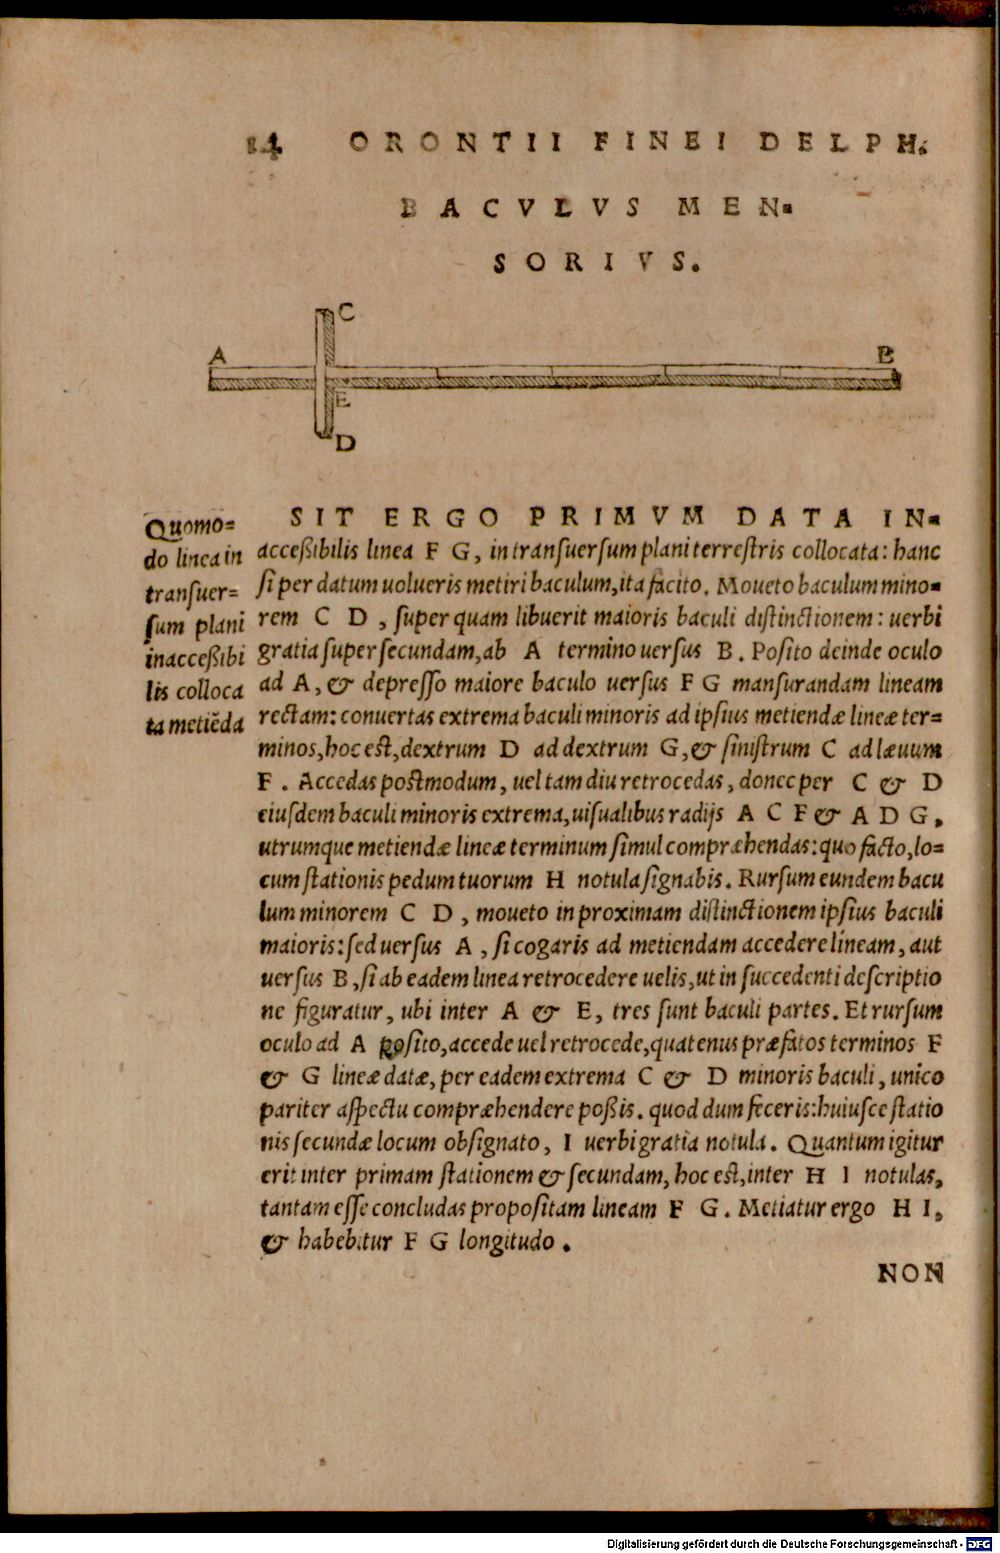 14 ORONTII FINEI DELPH.
BACVLVS MEN-
SORIVS.
C
A
B
E
D
Quomo=
do linea in
transuer=
sum plani
inacceßibi
lis colloca
ta metiẽda
SIT ERGO PRIMVM DATA IN-
acceßibilis linea F G, in transuersum plani terrestris collocata: hanc
si per datum uolueris metiri baculum, ita facito. Moueto baculum mino-
rem C D, super quam libuerit maioris baculi distinctionem: uerbi
gratia super secundam, ab A termino uersus B. Posito deinde oculo
ad A, & depresso maiore baculo uersus F G mansurandam lineam
rectam: conuertas extrema baculi minoris ad ipsius metiendæ lineæ ter=
minos, hoc est, dextrum D ad dextrum G, & sinistrum C ad læuum
F. Accedas postmodum, uel tam diu retrocedas, donec per C & D
eiusdem baculi minoris extrema, uisualibus radijs A C F & A D G,
utrumque metiendæ lineæ terminum simul compræhendas: quo facto, lo=
cum stationis pedum tuorum H notula signabis. Rursum eundem bacu
lum minorem C D, moueto in proximam distinctionem ipsius baculi
maioris: sed uersus A, si cogaris ad metiendam accedere lineam, aut
uersus B, si ab eadem linea retrocedere uelis, ut in succedenti descriptio
ne figuratur, ubi inter A & E, tres sunt baculi partes. Et rursum
oculo ad A posito, accede uel retrocede, quatenus præfatos terminos F
& G lineæ datæ, per eadem extrema C & D minoris baculi, unico
pariter aspectu compræhendere poßis. quod dum feceris: huiusce statio
nis secundæ locum obsignato, I uerbi gratia notula. Quantum igitur
erit inter primam stationem & secundam, hoc est, inter H I notulas,
tantam esse concludas propositam lineam F G. Metiatur ergo H I,
& habebitur F G longitudo.
NON
Digitalisierung gefördert durch die Deutsche Forschungsgemeinschaft - DFG